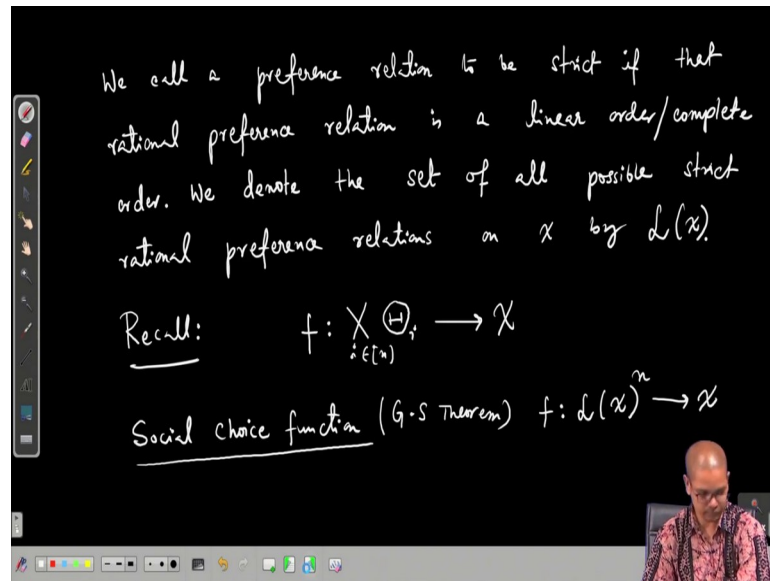 We call a preference relation to be strict if that
rational preference relation is a linear order/complete
order. We denote the set of all possible strict
rational preference relations on X by L(X).
Recall: f: X Θi → X
i∈[n]
Social choice function (G-S Theorem) f: L(X)^n → X